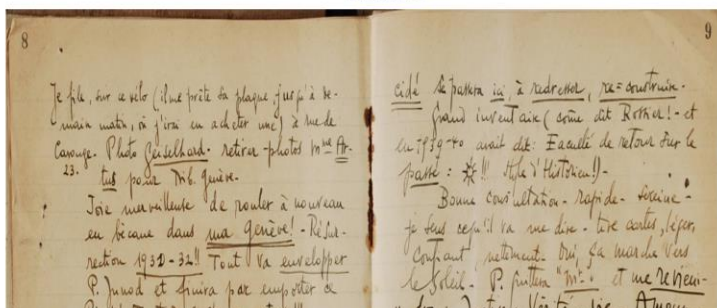 8
Je file, sur ce vélo (il me prête sa plaque, jusqu'à de-
main matin, où j'irai en acheter une) à rue de
Carouge. Photo Geiselhard - retirer - photos Mme Ar-
23.
tus pour Trib. Genève.
Joie merveilleuse de rouler à nouveau
en bécane dans ma Genève! - Résur-
rection 1930-32!! Tout va envelopper
P. Junod et finira par emporter ce
9
cidé se passera ici, à redresser, re=construire.
Grand inventaire (côme dit Rossier! - et
en 1939-40 avait dit: Faculté de retour sur le
passé: !! Style d'Historien!) -
Bonne consultation - rapide - sereine -
je sens ce qu'il va me dire - tire cartes, léger,
confiant, nettement. Oui, ça marche vers
le Soleil. P. quittera "Mt." et me revien-